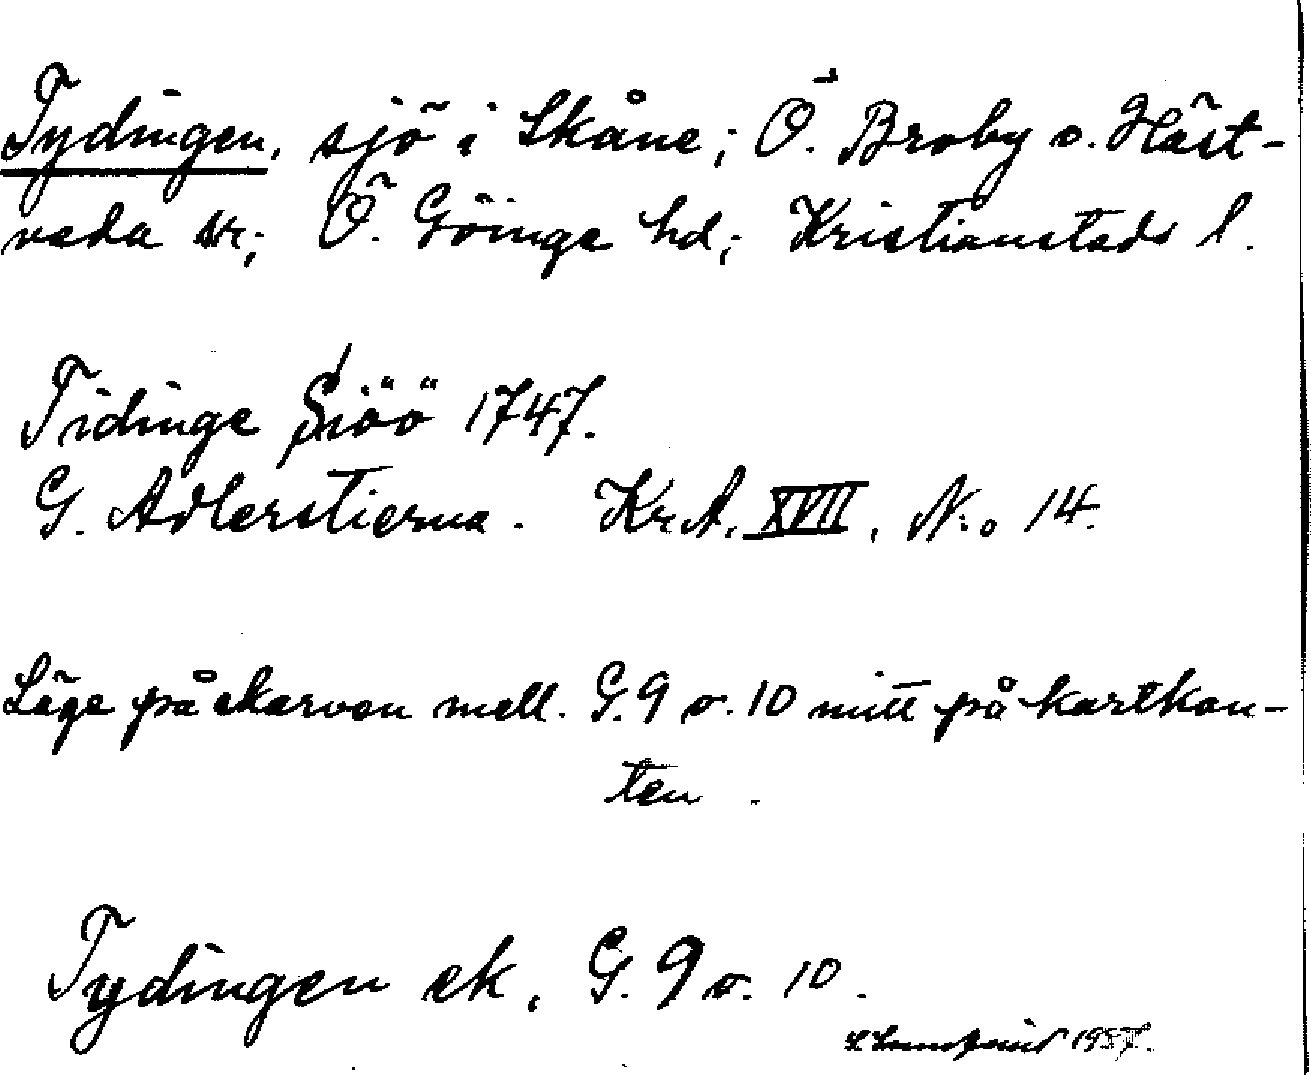 Tydingen, sjö i Skåne; Ö. Broby o. Häst-
veda snr; Ö. Göinge hd; Kristianstads l.
Tidinge Siöö 1747.
G. Adlerstierna. Kr.A. XVII, N:o 14.
Läge på skarven mell. G. 9 o. 10 mitt på kartkan-
ten.
Tydingen ek. G. 9 o. 10.
1957.